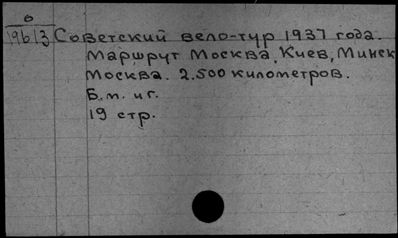 6
1963 Советский вело-тур 1937 года.
Маршрут Москва, Киев, Минск
Москва. 2.500 километров.
Б.м. и г.
19 стр.